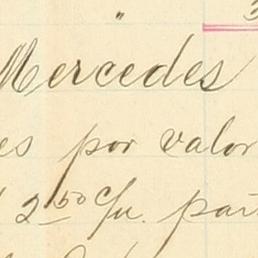 "
Mercedes
es por valor
2.50 c/u. part